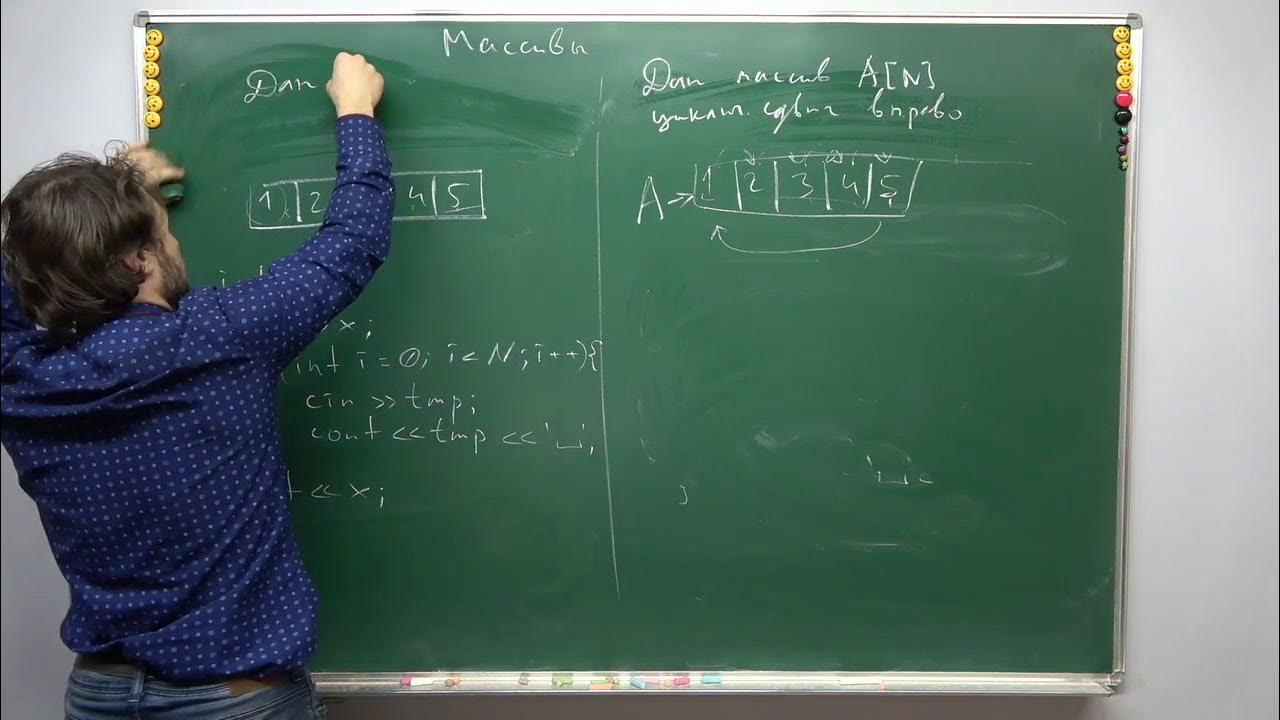 Массивы
Дан
1 2 4 5
x;
(int i=0; i<N; i++){
cin >> tmp;
cout << tmp << '␣';
t << x;
Дан массив A[N]
циклич. сдвиг вправо
A → 1 2 3 4 5